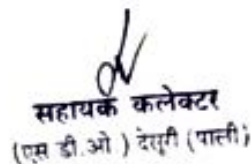 सहायक कलेक्टर
(एस डी.ओ ) देसूरी (पाली)